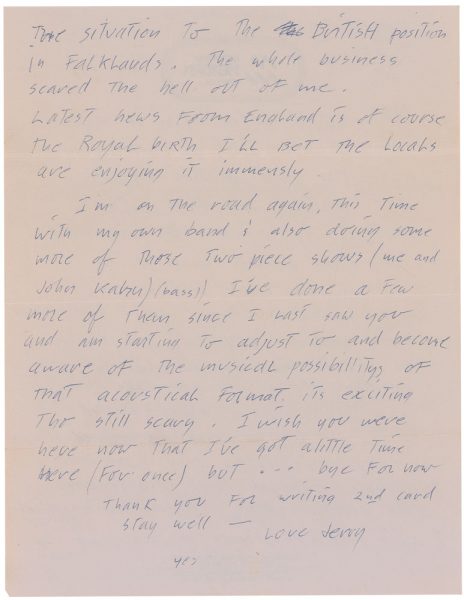 The situation to the British position
in Falklands. The whole business
scared the hell out of me.
Latest news from England is of course
the Royal birth I'll bet the locals
are enjoying it immensly.
I'm on the road again, this time
with my own band & also doing some
more of those two piece shows (me and
John Kahn) (bass)! I've done a few
more of them since I last saw you
and am starting to adjust to and become
aware of the musical possibilitys of
that acoustical format. its exciting
tho still scary. I wish you were
here now that I've got a little time
here (for once) but ... bye for now
Thank you for writing 2nd card
stay well — Love Jerry
yes